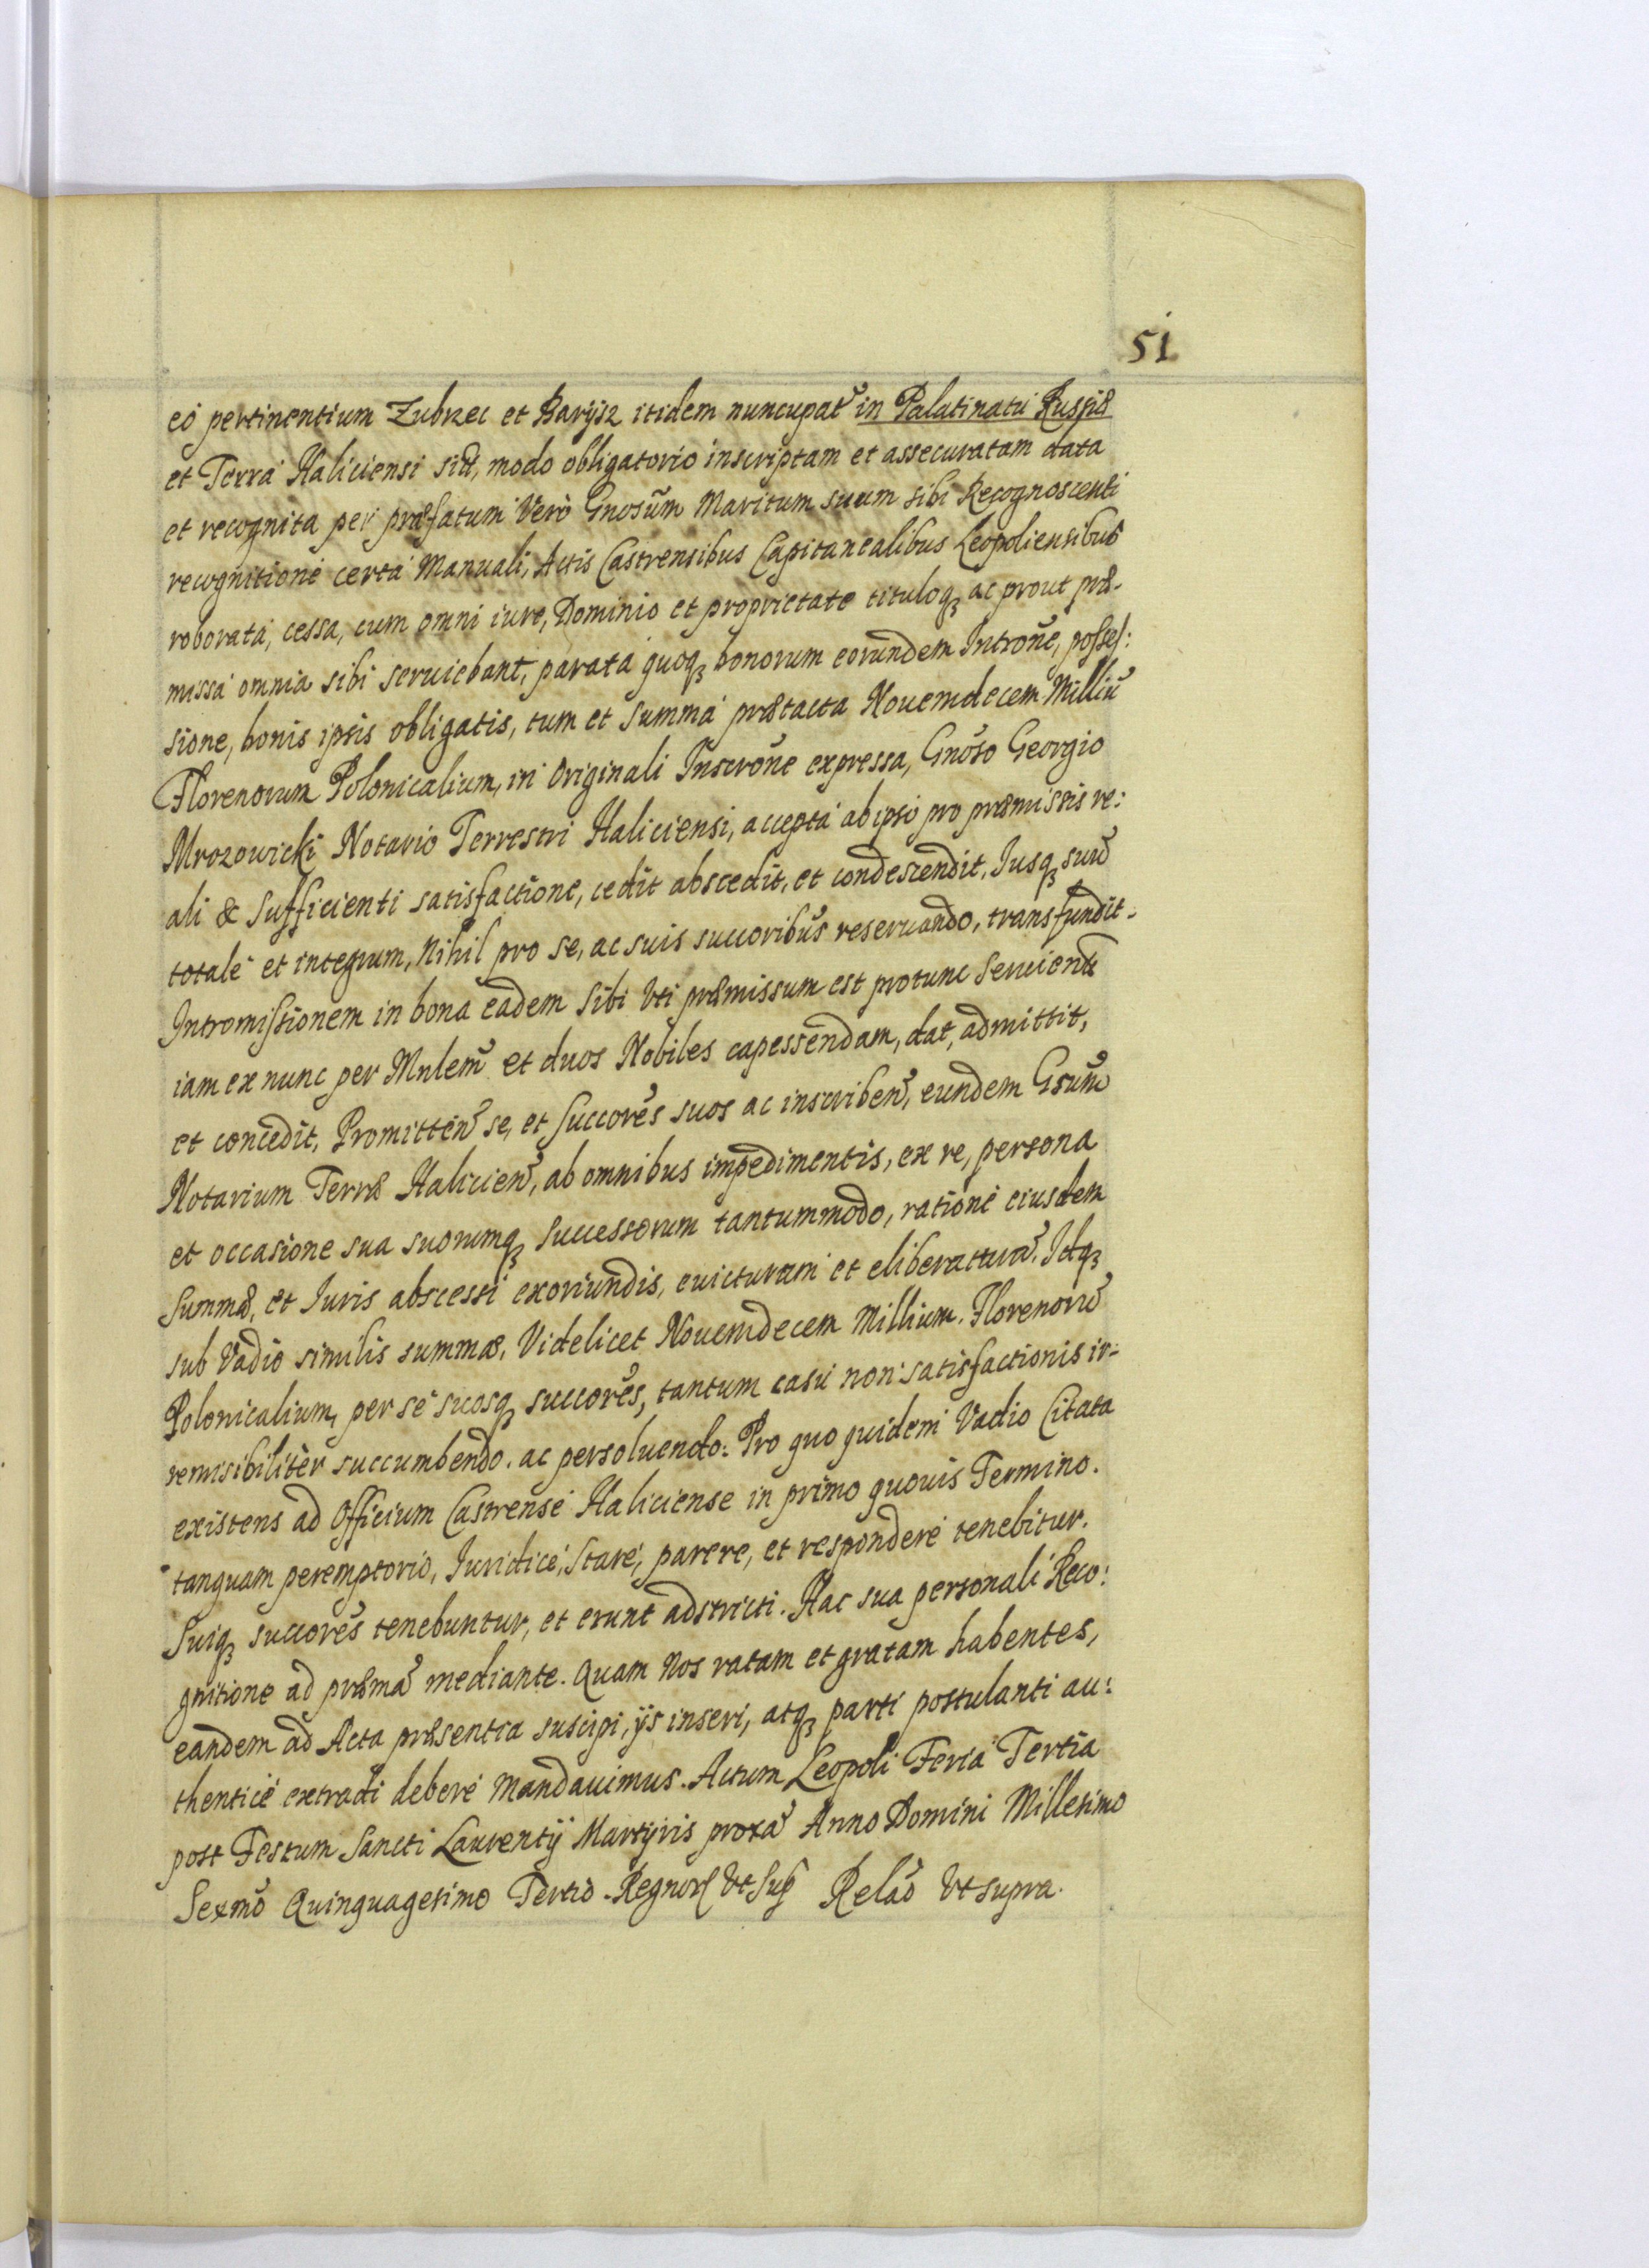 51
eó pertinentium Zubrzec et Barysz itidem nuncupat̃ in Palatinatu Russiæ
et Terrá Haliciensi sit̃, modo obligatorio inscriptam et assecuratam data
et recognita per præfatum Verò Gnosũm Maritum suum sibi Recognoscenti
recognitioné certá Manuali, Actis Castrensibus Capitanealibus Leopoliensibus
roboratá, cessa, cum omni iure, Dominio et proprietate tituloq3 ac prout præ-
missá omnia sibi seruiebant, paratá quoq3 bonorum eorundem Introñe, posses:
sione, bonis ipsis obligatis, tum et Summá prætacta Nouemdecem Milliũ
Florenorum Polonicalium, in Originali Inscroñe expressa, Gnoso Georgio
Mrozowicki Notario Terrestri Haliciensi, acceptá ab ipso pro præmissis re:
ali & Sufficienti satisfactione, cedit abscedit, et condescendit, Jusq3 suũ
totalé et integrum, Nihil pro se, ac suis succoribũs reseruando, transfundit.
Intromissionem in bona eadem Sibi Vti præmissum est protunc Seruient̃
iam ex nunc per Mnlem̃ et duos Nobiles capessendam, dat, admittit,
et concedit, Promitteñ se, et Succorẽs suos ac inscribeñ, eundem Gsũm
Notarium Terræ Halicieñ, ab omnibus impedimentis, ex re, persona
et occasione sua suorumq3 Successorum tantummodo, rationé eiusdem
Summæ, et Juris abscessi exoriundis, euicturam et eliberaturã. Idq3
sub Vadio similis summæ, Videlicet Nouemdecem Millium. Florenorũ
Polonicalium, per sé suosq3 succorẽs, tantum casu non satisfactionis ir-
remisibilitèr succumbendo. ac persoluendo: Pro quo quidem Vadio Citata
existens ad Officium Castrensé Haliciense in primo quouis Termino.
tanquam peremptorio, Juridicé, Staré, parere, et responderé tenebitur.
Suiq3 succorẽs tenebuntur, et erunt adstricti. Hac sua personali Reco:
gnitione ad præmã mediante. Quam Nos ratam et gratam habentes,
eandem ad Acta præsentia suscipi, ijs inseri, atq3 parti postulanti au:
thenticé extradi deberé Mandauimus. Actum Leopoli Feriá Tertia
post Festum Sancti Laurentij Martyris proxã Anno Domini Millesimo
Sexmõ Quinquagesimo Tertio. Regnorũ Vt Sup̃ Relão Vt supra.